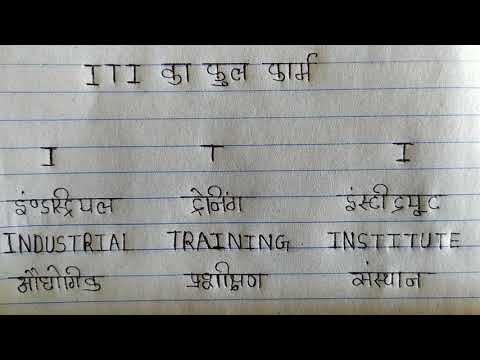 ITI का फुल फार्म
I T I
इंण्डस्ट्रियल ट्रेनिंग इंस्टीट्यूट
INDUSTRIAL TRAINING INSTITUTE
औद्योगिक प्रशीक्षण संस्थान